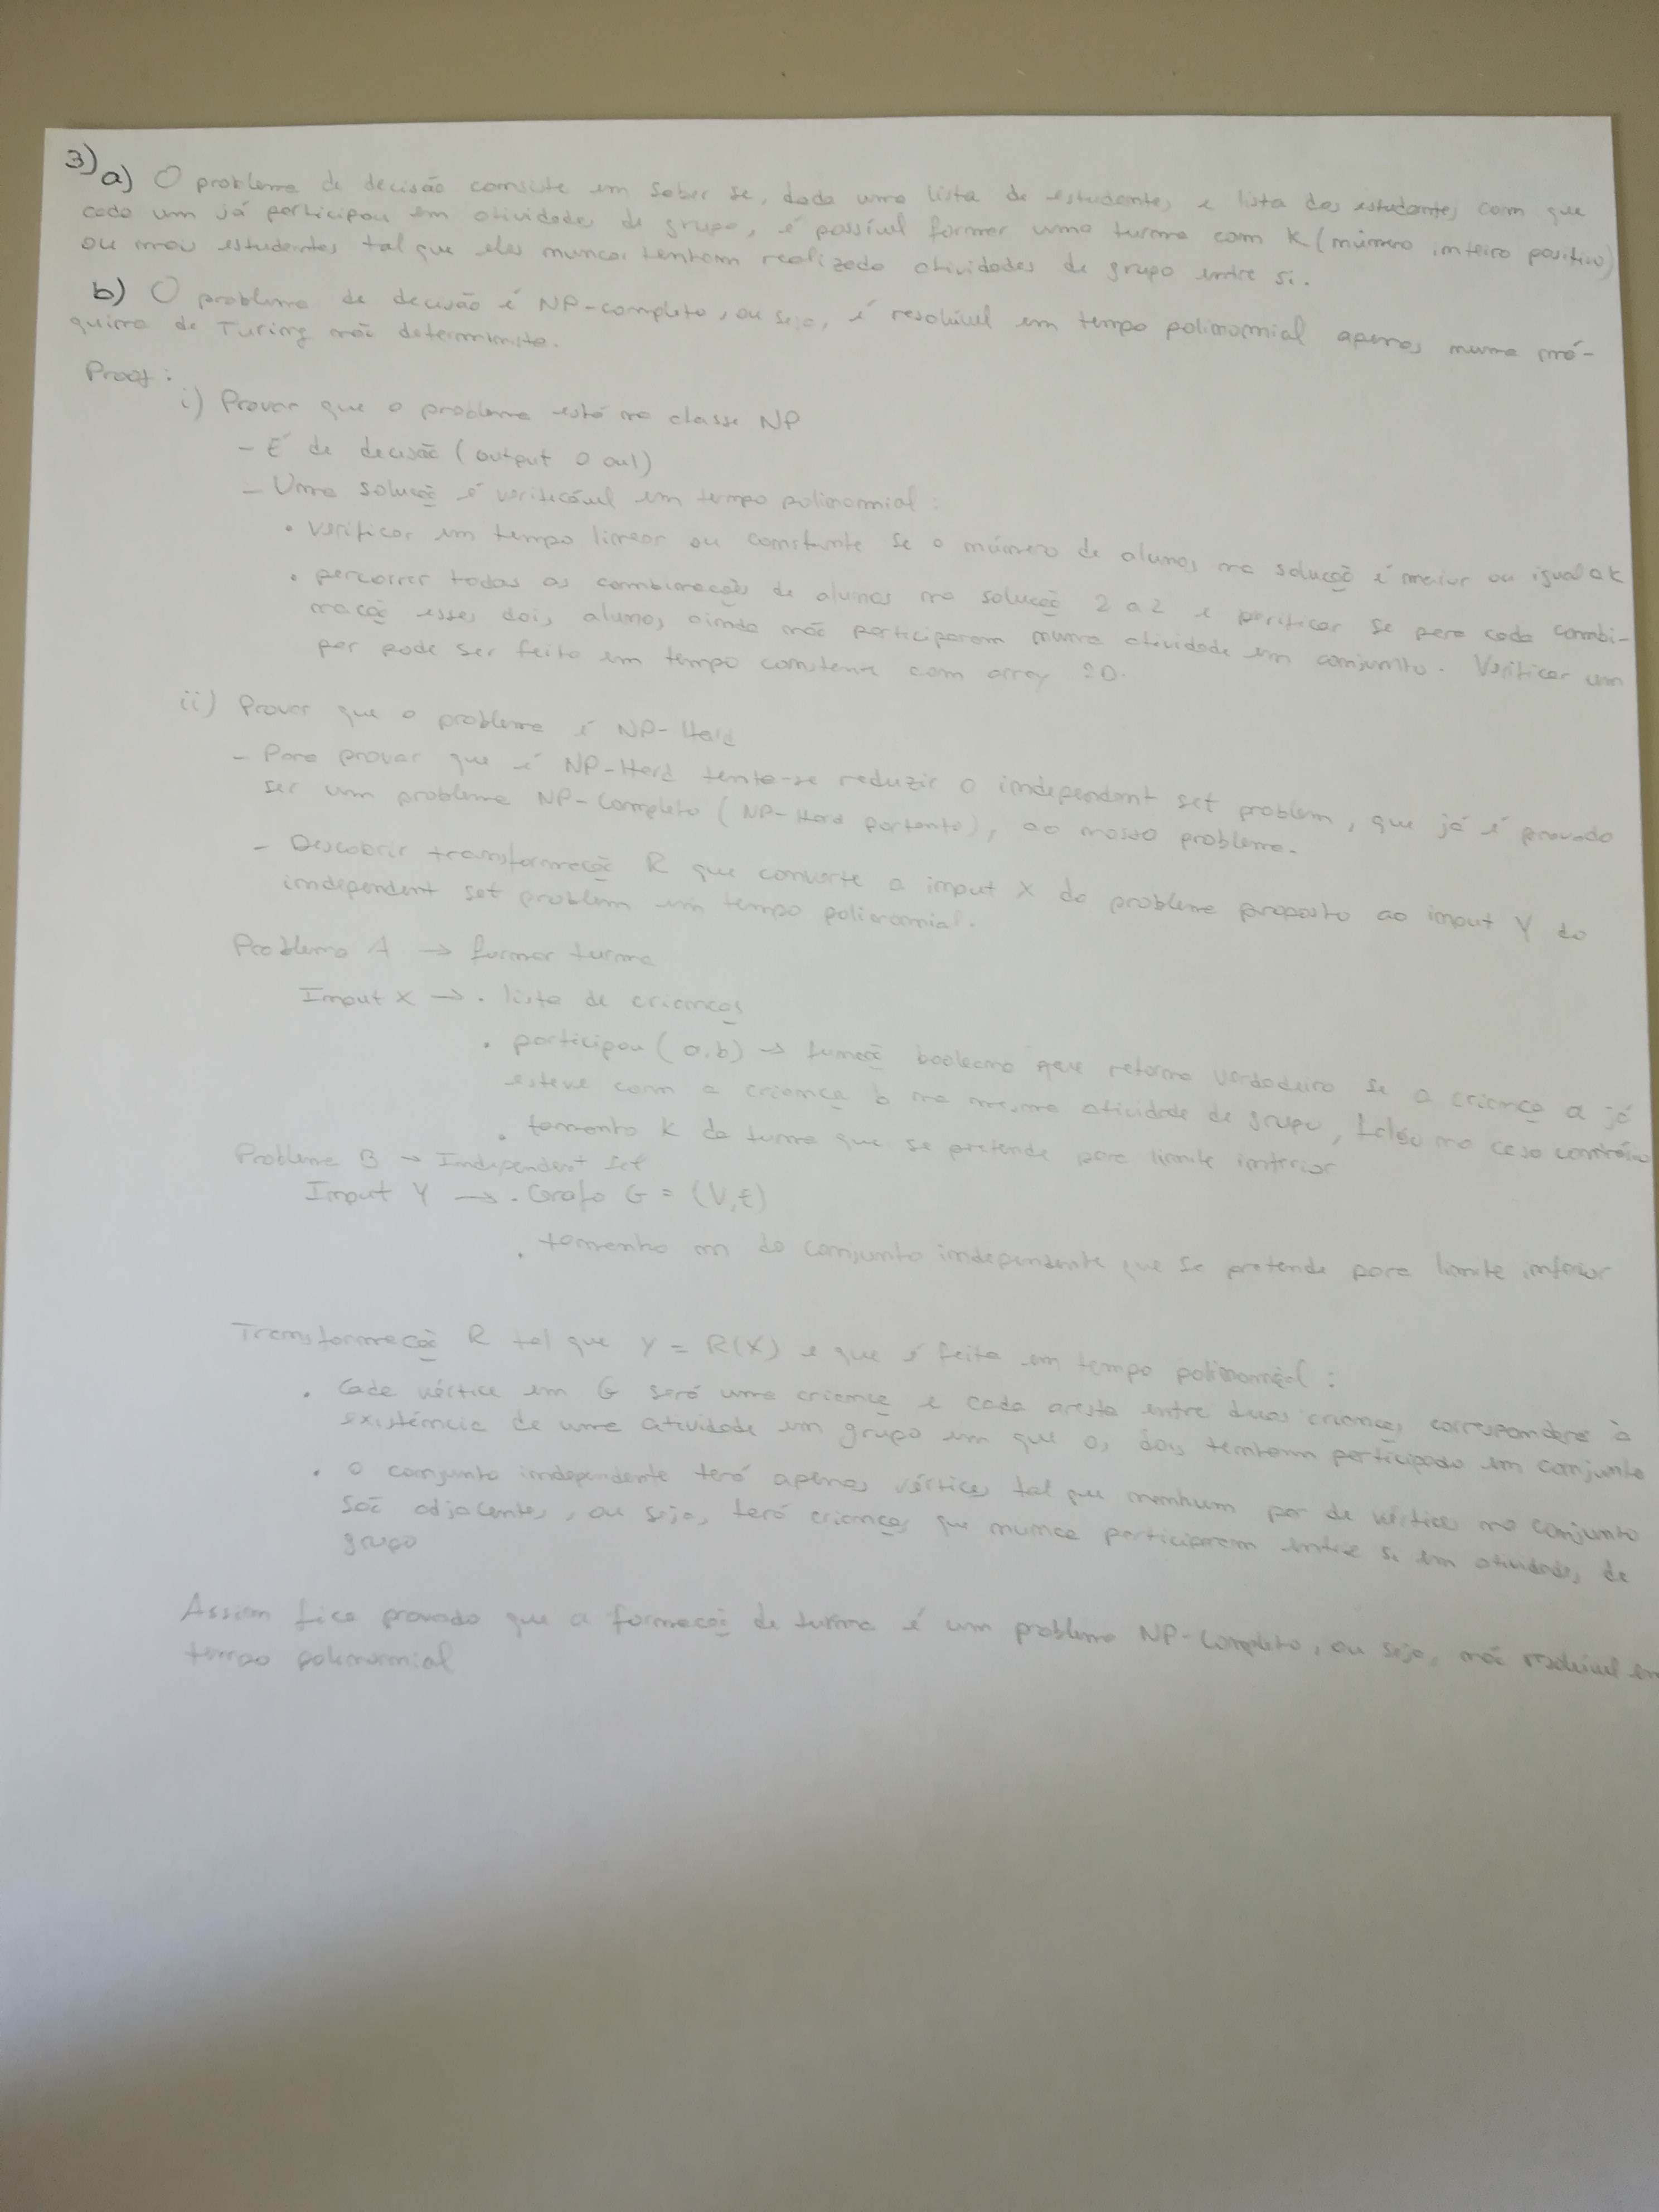 3) a) O problema de decisão consiste em saber se, dada uma lista de estudantes e lista dos estudantes com que
cada um já participou em atividades de grupo, é possível formar uma turma com K (número inteiro positivo)
ou mais estudantes tal que eles nunca tenham realizado atividades de grupo entre si.
b) O problema de decisão é NP-completo, ou seja, é resolúvel em tempo polinomial apenas numa má-
quina de Turing não determinista.
Proof:
i) Provar que o problema está na classe NP
- É de decisão (output 0 ou 1)
- Uma solução é verificável em tempo polinomial:
• verificar em tempo linear ou constante se o número de alunos na solução é maior ou igual a K
• percorrer todas as combinações de alunos na solução 2 a 2 e verificar se para cada combi-
nação esses dois alunos ainda não participaram numa atividade em conjunto. Verificar um
par pode ser feito em tempo constante com array 2D.
ii) Provar que o problema é NP-Hard
- Para provar que é NP-Hard tenta-se reduzir o independent set problem, que já é provado
ser um problema NP-Completo (NP-Hard portanto), ao nosso problema.
- Descobrir transformação R que converte o input X do problema proposto ao input Y do
independent set problem em tempo polinomial.
Problema A → formar turma
Input X → • lista de crianças
• participou (a,b) → função booleana que retorna verdadeiro se a criança a já
esteve com a criança b na mesma atividade de grupo, falso no caso contrário
• tamanho K da turma que se pretende para limite inferior
Problema B → Independent Set
Input Y → • Grafo G = (V,E)
• tamanho m do conjunto independente que se pretende para limite inferior
Transformação R tal que Y = R(X) e que é feita em tempo polinomial:
• Cada vértice em G será uma criança e cada aresta entre duas crianças corresponderá à
existência de uma atividade em grupo em que os dois tenham participado em conjunto
• O conjunto independente terá apenas vértices tal que nenhum par de vértices no conjunto
são adjacentes, ou seja, terá crianças que nunca participaram entre si em atividades de
grupo
Assim fica provado que a formação de turma é um problema NP-Completo, ou seja, não resolúvel em
tempo polinomial